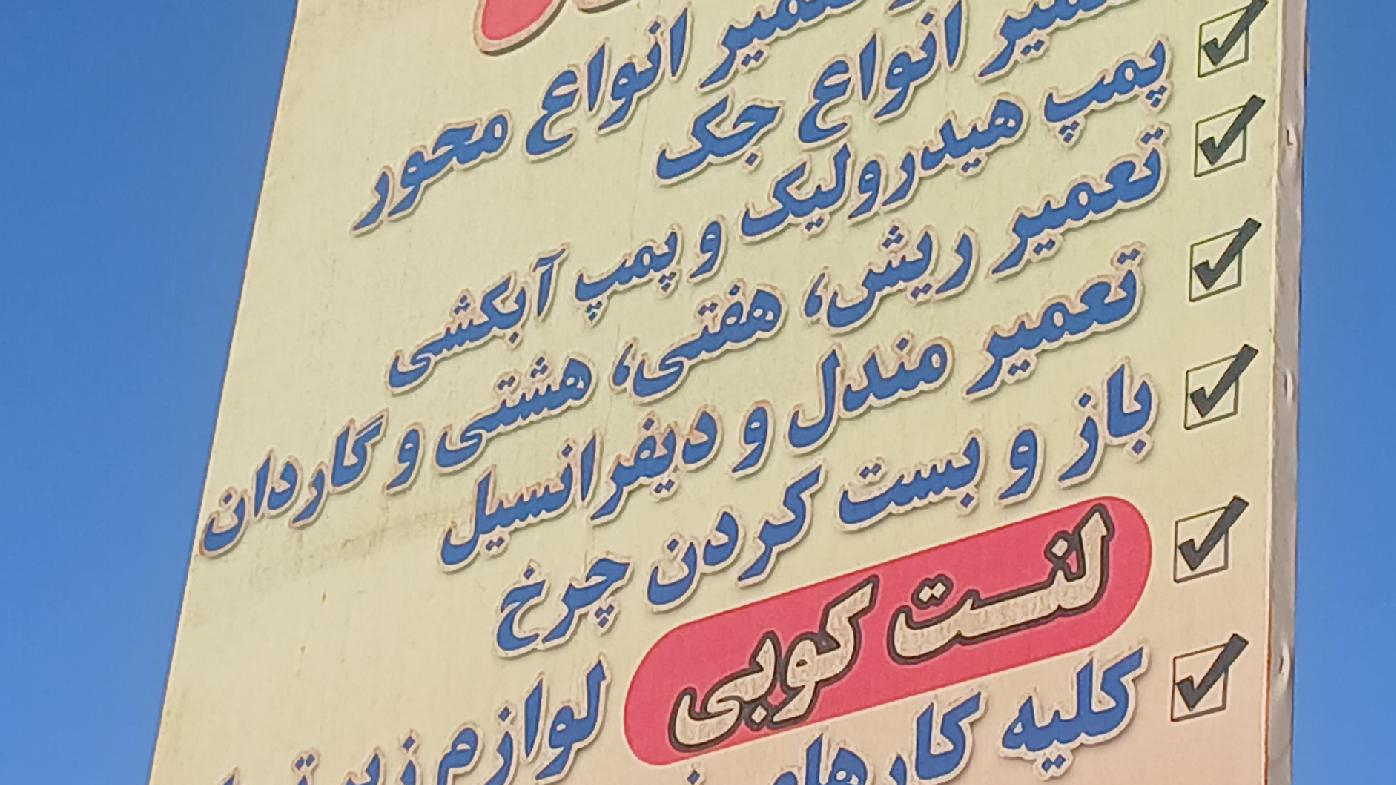 تعمیر انواع محور
تعمیر انواع جک
پمپ هیدرولیک و پمپ آبکشی
تعمیر ریش، هفتی، هشتی و گاردان
تعمیر مندل و دیفرانسیل
باز و بست کردن چرخ
لنت کوبی لوازم زیر
کلیه کارهای